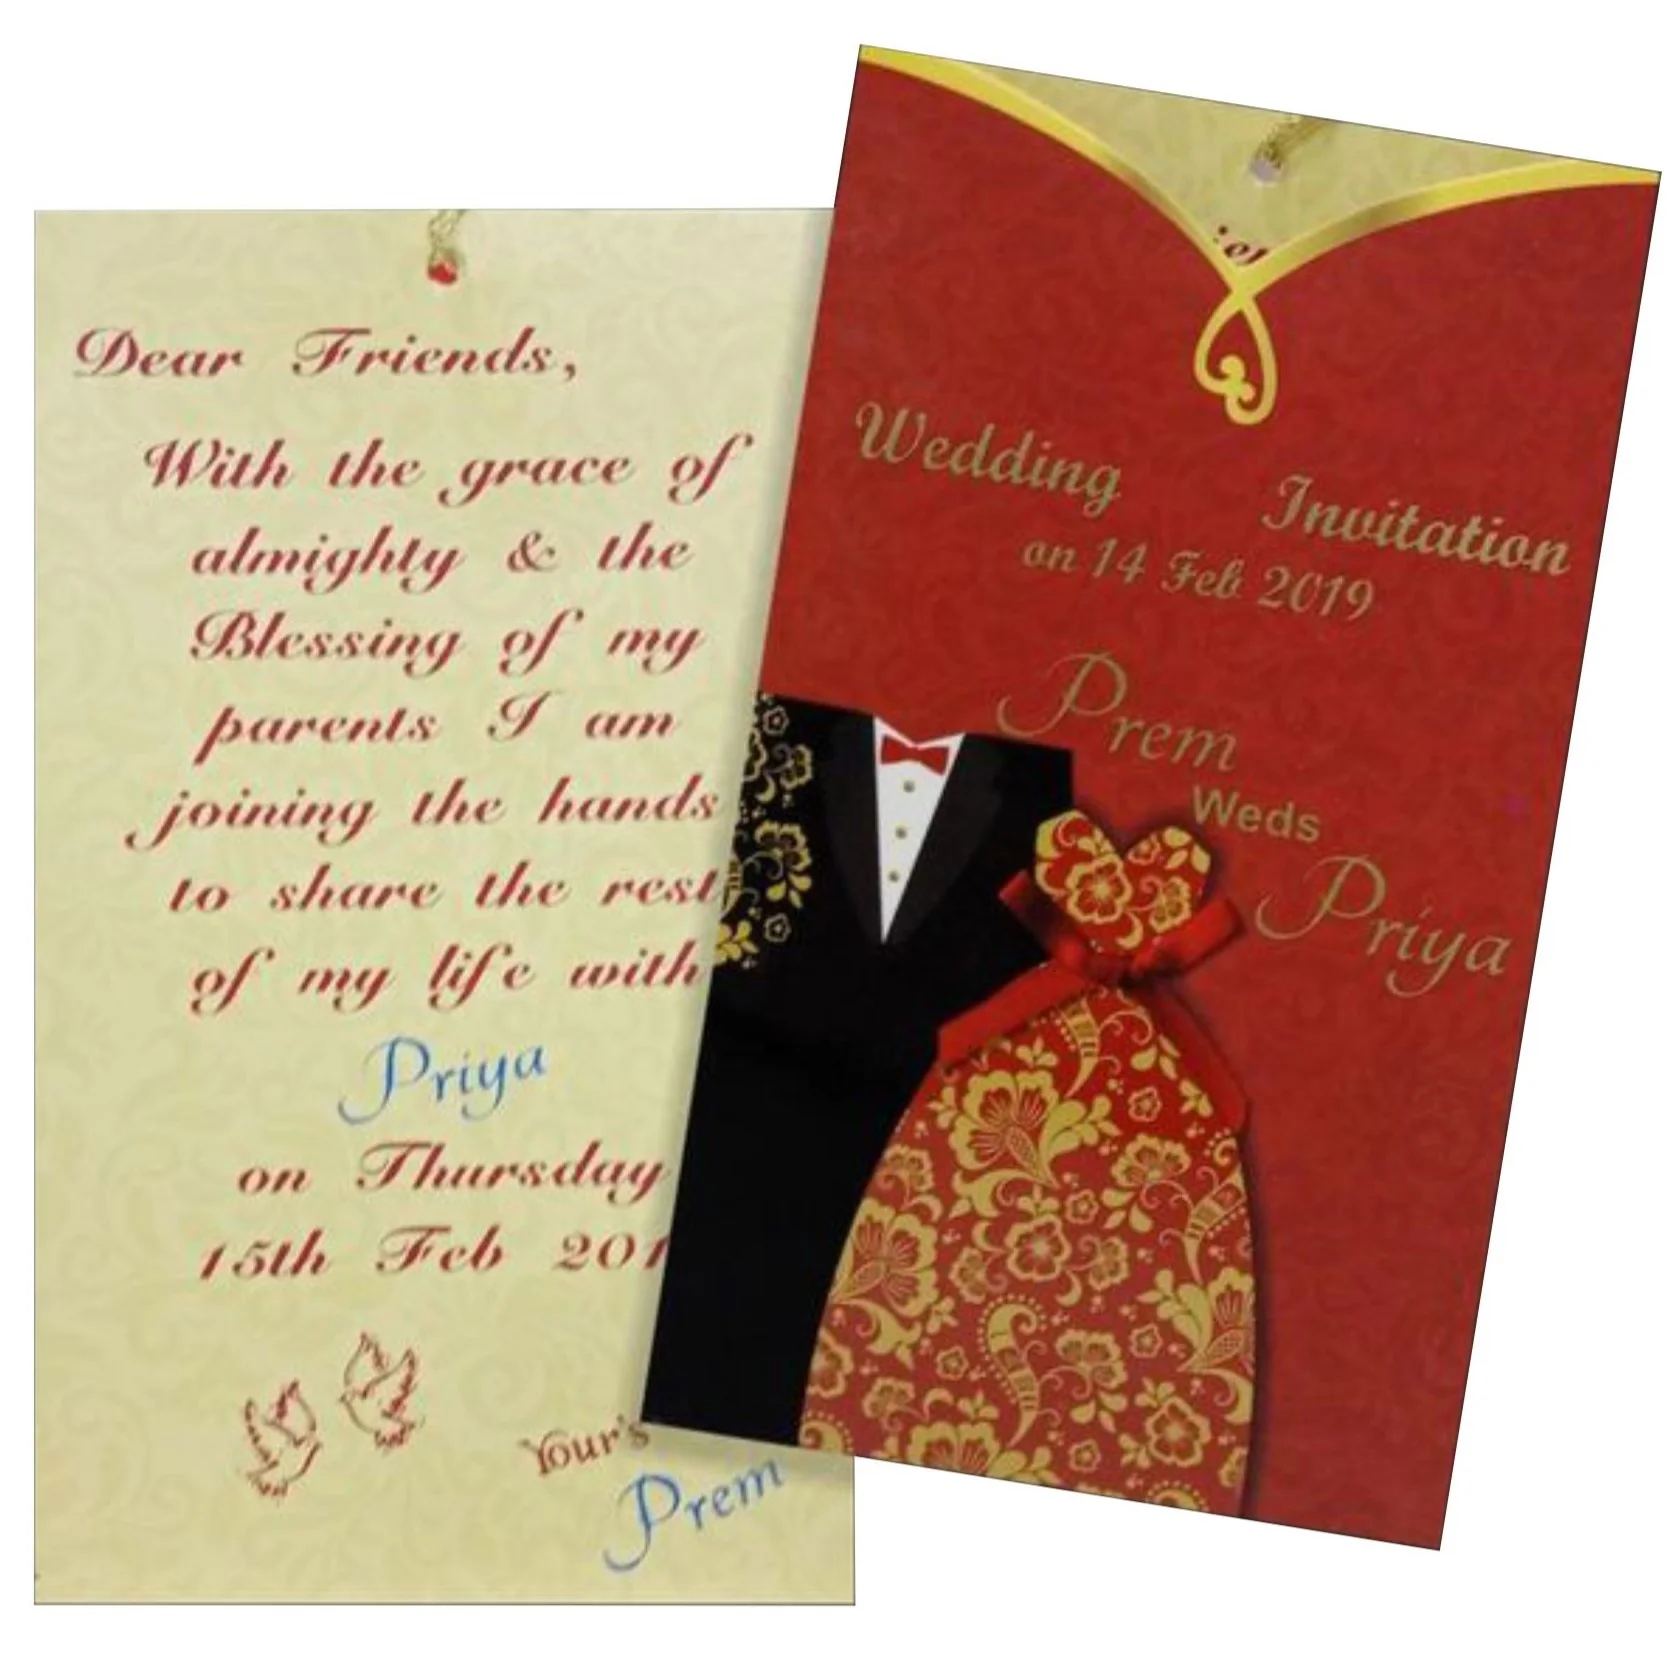 Dear Friends,
With the grace of
almighty & the
Blessing of my
parents I am
joining the hands
to share the rest
of my life with
Priya
on Thursday
15th Feb 201
Your's
Prem
Wedding Invitation
on 14 Feb 2019
Prem
Weds
Priya